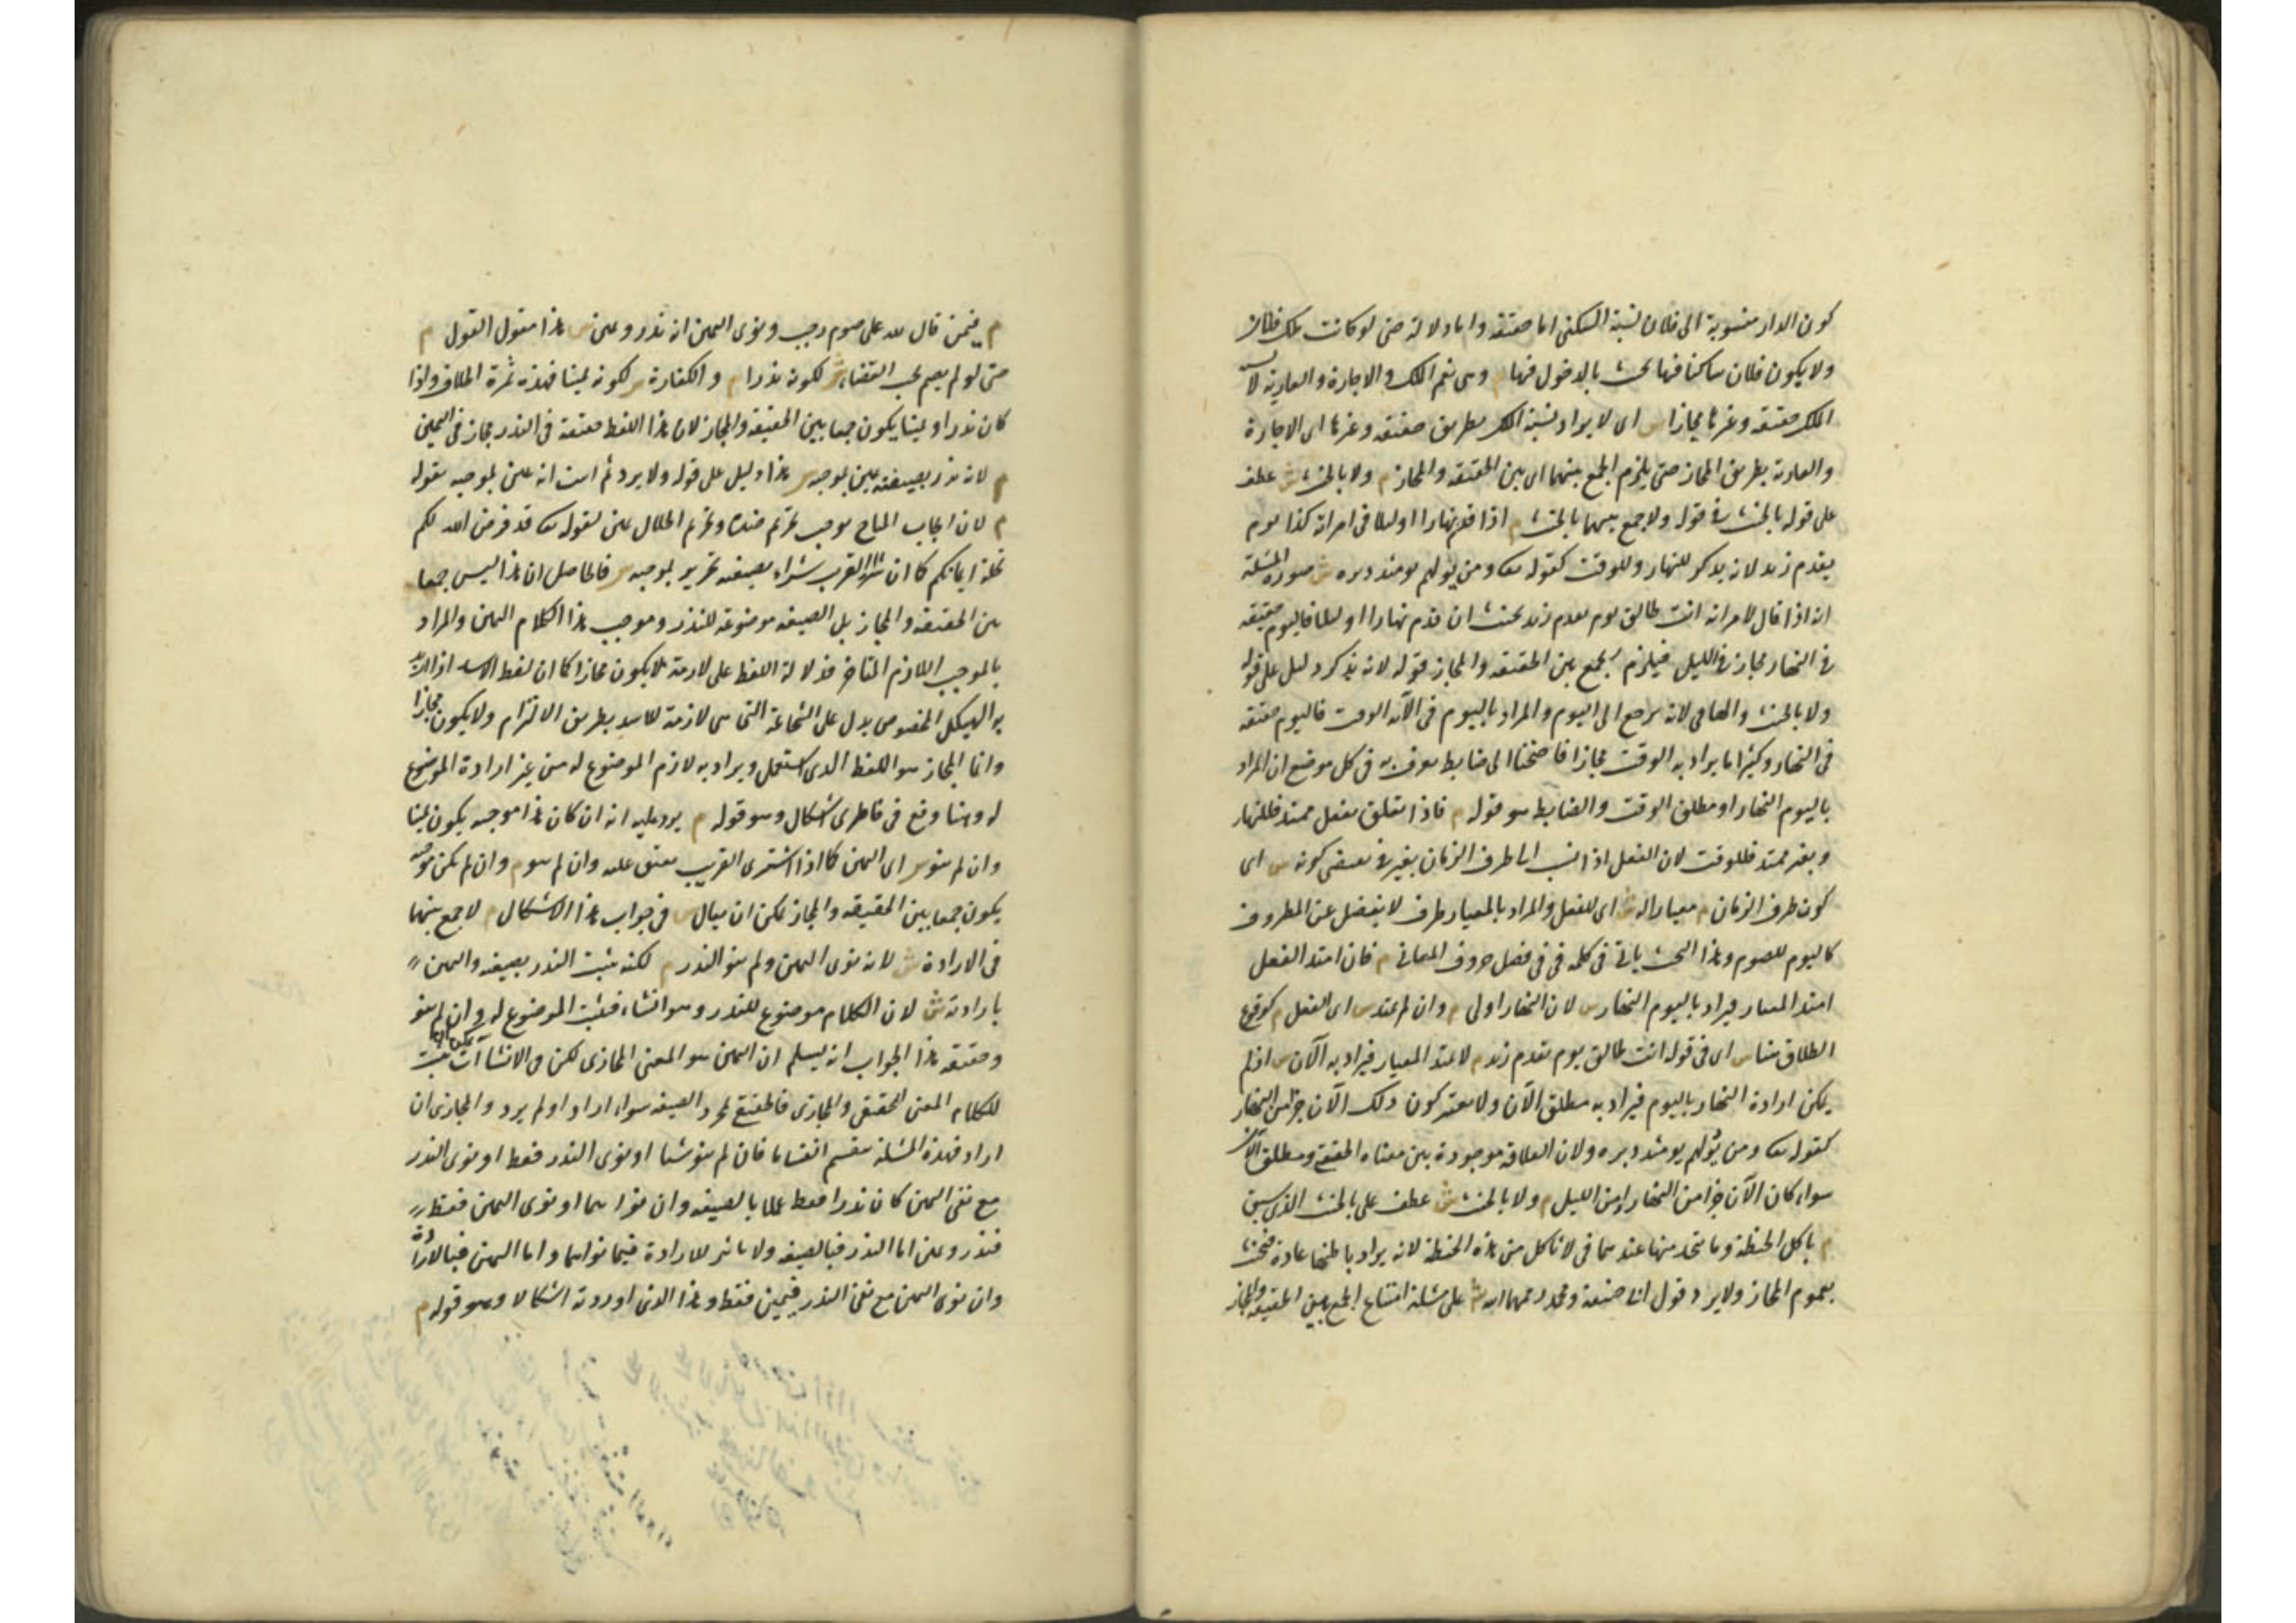 كون الدار منسوبة الى فلان نسبة السكنى اما حقيقة واما دلالة حتى لو كانت ملك فلان
ولا يكون فلان ساكنا فيها يحنث بالدخول فيها م وهى تعم الملك والاجارة والعارية لا نسبة
الملك حقيقة وغيرها مجازا س اى لا يراد نسبة الملك بطريق حقيقة وغيرها اى الاجارة
والعارية بطريق المجاز حتى يلزم الجمع بينهما اى بين الحقيقة والمجاز م ولا بالحنث ش عطف
على قوله بالحنث فى قوله ولا جمع بينهما بالحنث م اذا قدم نهارا او ليلا فى امراته كذا يوم
يقدم زيد لانه يذكر للنهار وللوقت كقوله تعالى ومن يولهم يومئذ دبره ش صورة المسئلة
انه اذا قال لامراته انت طالق يوم يقدم زيد يحنث ان قدم نهارا او ليلا فاليوم حقيقة
فى النهار مجاز فى الليل فيلزم الجمع بين الحقيقة والمجاز قوله لانه يذكر دليل على قوله
ولا بالحنث والهاء فى لانه يرجع الى اليوم والمراد باليوم فى الآية الوقت فاليوم حقيقة
فى النهار وكثيرا ما يراد به الوقت مجازا فاحتجنا الى ضابط يعرف به فى كل موضع ان المراد
باليوم النهار او مطلق الوقت والضابط هو قوله م فاذا تعلق بفعل ممتد فللنهار
وبغير ممتد فللوقت لان الفعل اذا نسب الى ظرف الزمان بغير فى يقتضى كونه س اى
كون ظرف الزمان م معيارا له ش اى للفعل والمراد بالمعيار ظرف لا يفضل عن المظروف
كاليوم للصوم وهذا البحث ياتى فى كلمة فى فى فصل حروف المعانى م فان امتد الفعل
امتد المعيار فيراد باليوم النهار س لان النهار اولى م وان لم يمتد س اى الفعل م كوقوع
الطلاق هنا س اى فى قوله انت طالق يوم يقدم زيد م لا يمتد المعيار فيراد به الآن س اذ لم
يمكن ارادة النهار باليوم فيراد به مطلق الآن ولا يعتبر كون ذلك الآن جزأ من النهار
كقوله تعالى ومن يولهم يومئذ دبره ولان العلاقة موجودة بين معناه الحقيقى ومطلق الآن
سواء كان الآن جزأ من النهار او من الليل م ولا بالحنث ش عطف على بالحنث الذى سبق
م باكل الحنطة وما يتخذ منها عندهما فى لا ياكل من هذه الحنطة لانه يراد باطنها عادة فيحنث
بعموم المجاز ولا يرد قول ابى حنيفة ومحمد رحمهما الله ش على مسئلة امتناع الجمع بين الحقيقة والمجاز
م فيمن قال لله على صوم رجب ونوى اليمين انه نذر ويمين س هذا مقول القول م
حتى لو لم يصم يجب القضاء ش لكونه نذرا م والكفارة س لكونه يمينا فهذه ثمرة الخلاف واذا
كان نذرا ويمينا يكون جمعا بين الحقيقة والمجاز لان هذا اللفظ حقيقة فى النذر مجاز فى اليمين
م لانه نذر بصيغته يمين بموجبه س هذا دليل على قوله ولا يرد ثم اثبت انه يمين بموجبه بقوله
م لان ايجاب المباح يوجب تحريم ضده وتحريم الحلال يمين لقوله تعالى قد فرض الله لكم
تحلة ايمانكم كما ان شراء القريب شراء بصيغته تحرير بموجبه س فالحاصل ان هذا ليس جمعا
بين الحقيقة والمجاز بل الصيغة موضوعة للنذر وموجب هذا الكلام اليمين والمراد
بالموجب اللازم المتاخر فدلالة اللفظ على لازمه لا يكون مجازا كما ان لفظ الاسد اذا اريد
به الهيكل المخصوص يدل على الشجاعة التى هى لازمة للاسد بطريق الالتزام ولا يكون مجازا
وانما المجاز هو اللفظ الذى استعمل ويراد به لازم الموضوع له من غير ارادة الموضوع
له وهنا وقع فى خاطرى اشكال وهو قوله م يرد عليه انه ان كان هذا موجبه يكون يمينا
وان لم ينو س اى اليمين كما اذا اشترى القريب يعتق عليه وان لم ينو م وان لم يكن موجبه
يكون جمعا بين الحقيقة والمجاز يمكن ان يقال س فى جواب هذا الاشكال م لا جمع بينهما
فى الارادة ش لانه نوى اليمين ولم ينو النذر م لكنه يثبت النذر بصيغته واليمين
بارادته ش لان الكلام موضوع للنذر وهو انشاء فيثبت الموضوع له وان لم ينو
وحقيقة هذا الجواب انه يسلم ان اليمين هو المعنى المجازى لكن فى الانشاآت يمكن ان يثبت
للكلام المعنى الحقيقى والمجازى فالحقيقى بمجرد الصيغة سواء اراد او لم يرد والمجازى ان
اراد فهذه المسئلة تنقسم اقساما فان لم ينو شيئا او نوى النذر فقط او نوى النذر
مع نفى اليمين كان نذرا فقط عملا بالصيغة وان نواهما او نوى اليمين فقط
فنذر ويمين اما النذر فبالصيغة ولا تاثير للارادة فيما نواهما واما اليمين فبالارادة
وان نوى اليمين مع نفى النذر فيمين فقط وهذا الذى اوردته اشكالا وهو قوله م